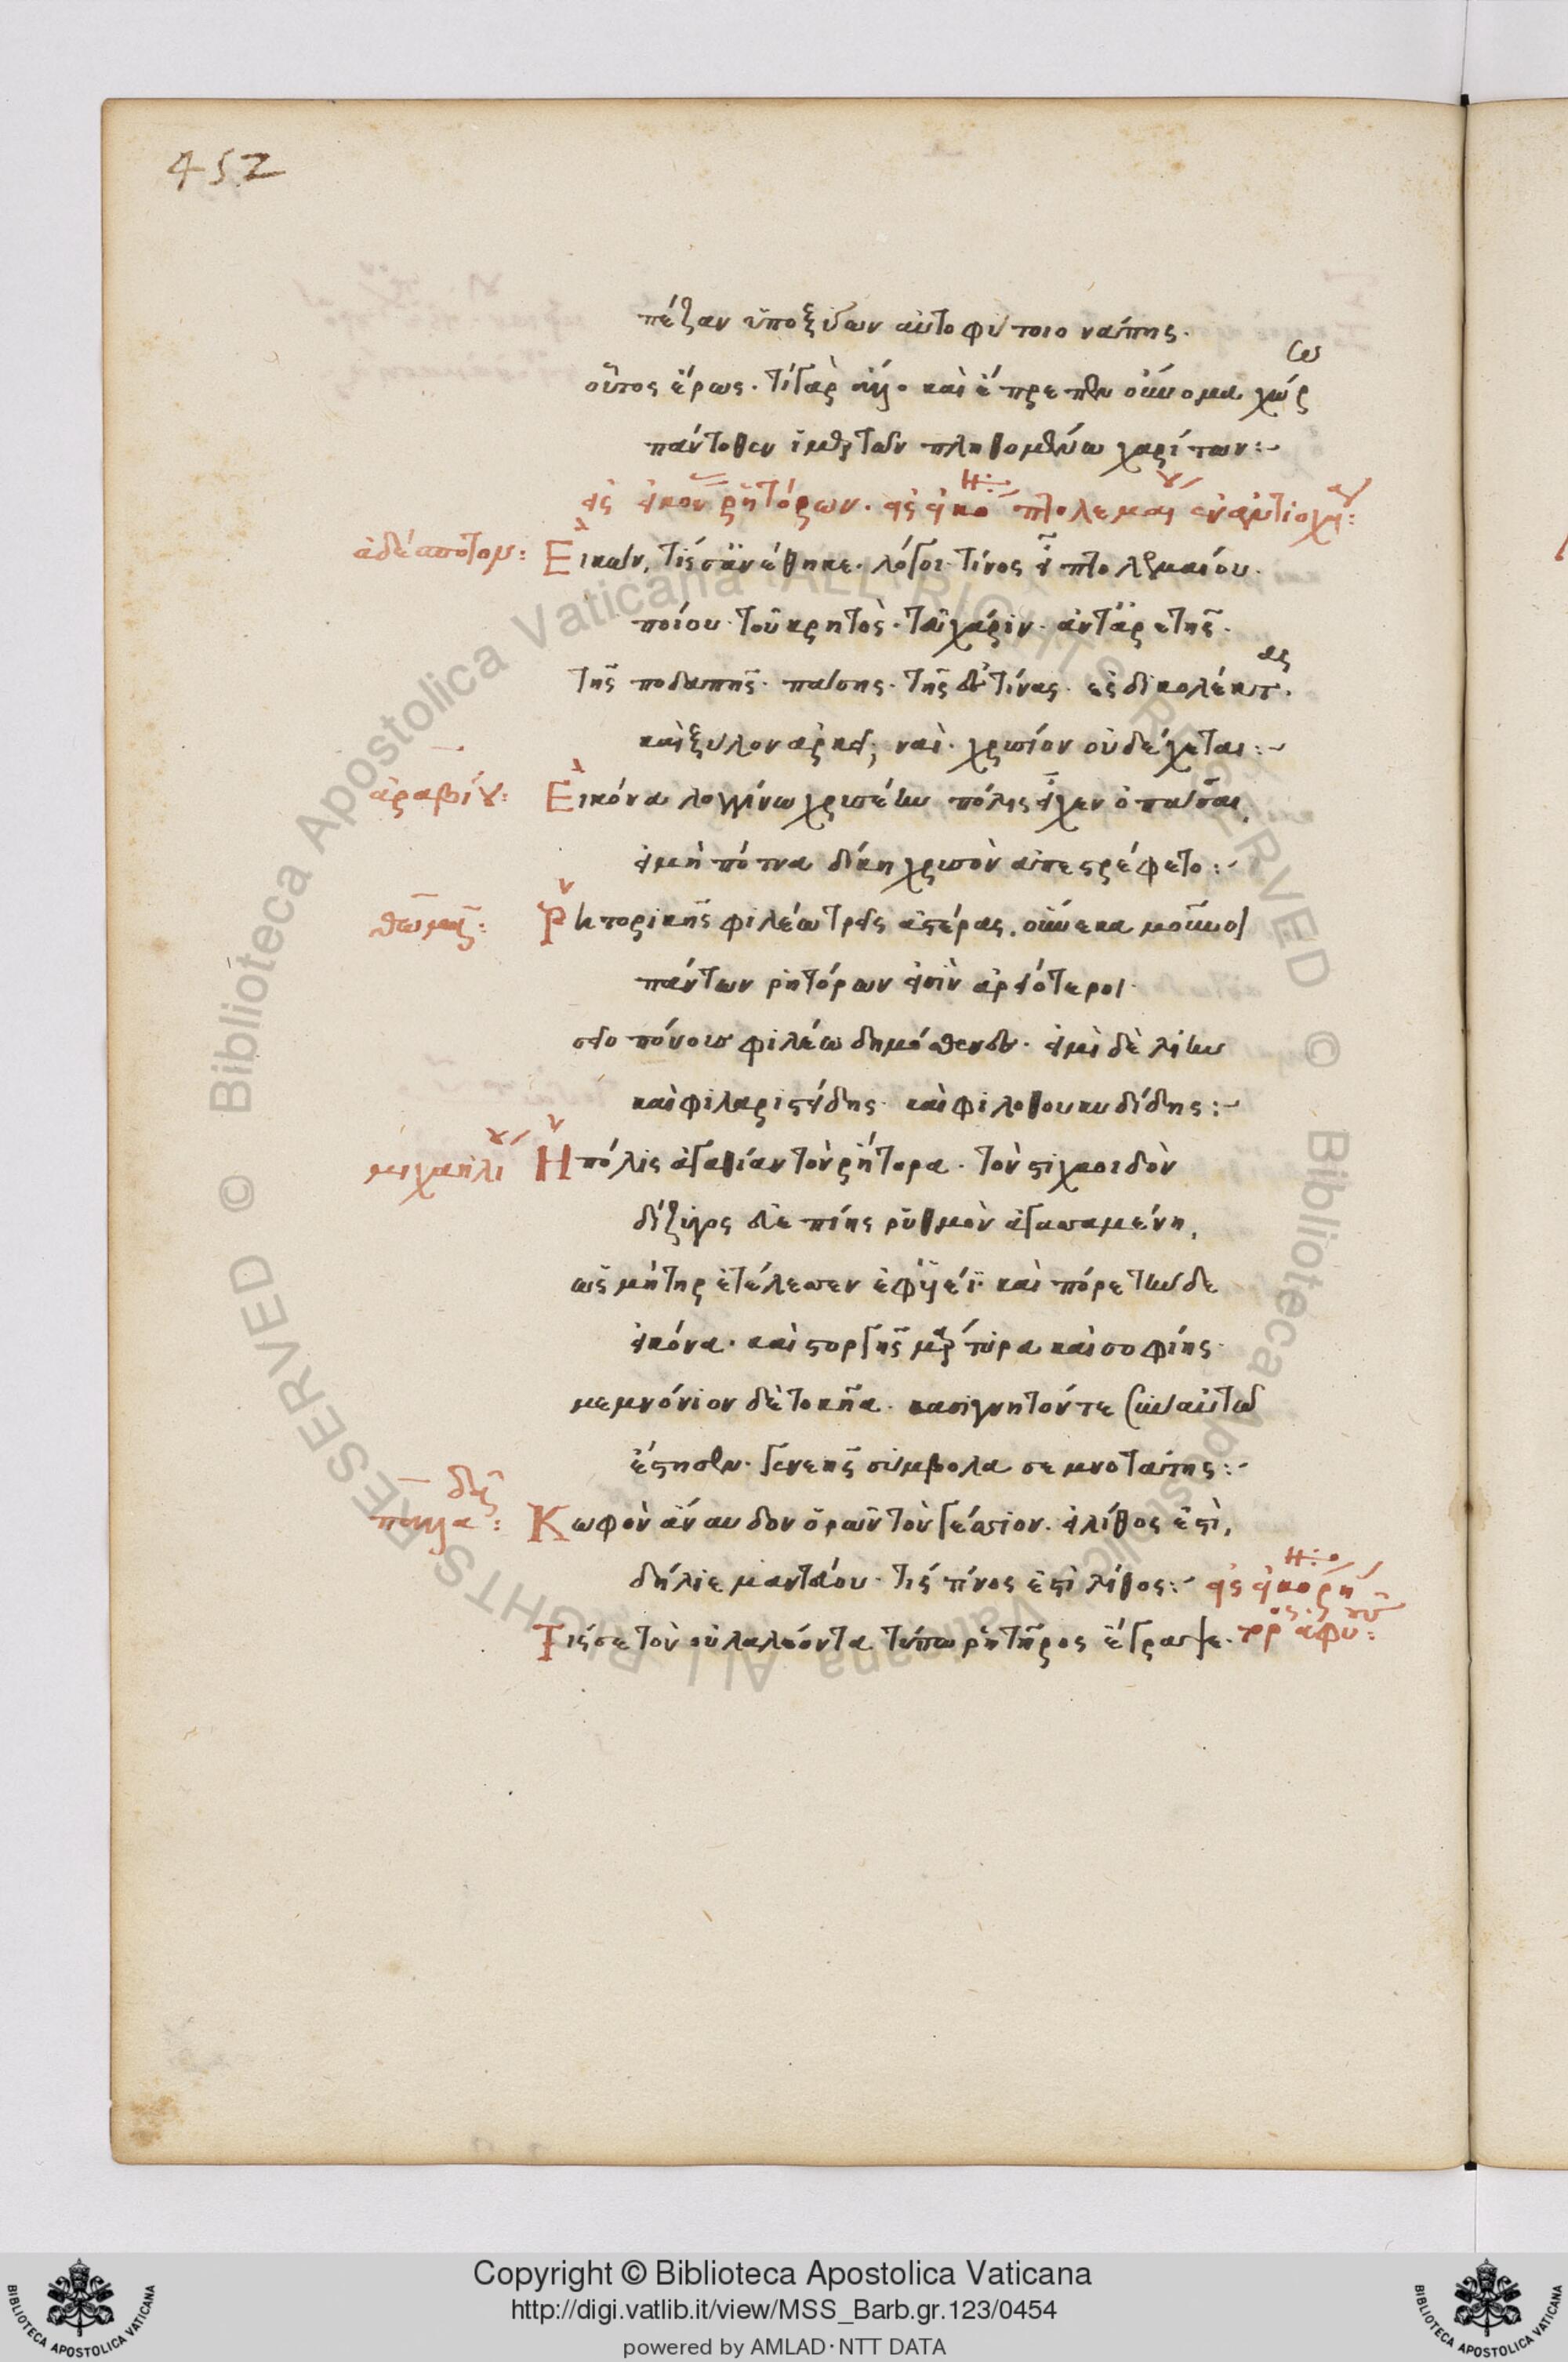 452
πέζαν ὑποξύων αὐτοφύτοιο νάπης.
οὗτος ἔρως. τί γὰρ ἄλλο. καὶ ἔπρεπεν οὔνομα χώρω
πάντοθεν ἱμερτῶν πληθομένω χαρίτων:~
εἰς εἰκον ῥητόρων. εἰς εἰκο πτολεμαι ἐν ἀντιοχεία:
ἀδέσποτον: Εἰκων, τίς σ' ἀνέθηκε. λόγοι. τίνος εἶ πτολεμαίου.
ποίου. τοῦ κρητὸς. τοῦ χάριν. ἀντ' ἀρετῆς.
τῆς ποδαπῆς. πάσης. τῆς δ' τίνας. ἐς δικολέκτας.
καὶ ξύλον ἀρκεῖ; ναὶ. χρυσίον οὐ δέχεται:~
ἀραβίου: Εἰκόνα λογγίνω χρυσέην πόλις εἶχεν ὀπάσσαι,
εἰ μὴ πότνα δίκη χρυσὸν ἀπεστρέφετο:~
θωμᾶ: Ῥητορικῆς φιλέω τρεῖς ἀστέρας, οὕνεκα μοῦνοι
πάντων ῥητόρων εἰσὶν ἀρείότεροι.
σεῖο πόνους φιλέω δημόσθενες. εἰμὶ δὲ λίην
καὶ φιλαριστείδης. καὶ φιλοθουκυδίδης:~
μιχαηλίου Ἡ πόλις ἀγαθίαν τὸν ῥήτορα. τὸν στιχαοιδὸν
δίζυγος εὐεπίης ῥυθμὸν ἀγασσαμένη,
ὡς μήτηρ ἐτέλεσσεν ἐφ' υἱέϊ. καὶ πόρε τήνδε
εἰκόνα. καὶ στοργῆς μάρτυρα καὶ σοφίης.
μεμνόνιον δὲ τοκῆα. κασίγνητόν τε σὺν αὐτῷ
ἔστησεν. γενεῆς σύμβολα σεμνοτάτης:~
παλλαδᾶ: Κωφὸν ἄναυδον ὁρῶν τὸν γέσσιον. εἰ λίθος ἐστὶ,
δήλιε μαντεύου. τίς τίνος ἐστὶ λίθος:~ εἰς εἰκο ῥη
Τίς σε τὸν οὐ λαλέοντα τύπω ῥητῆρος ἔγραψε. πρὸς ἀφυ:
Copyright © Biblioteca Apostolica Vaticana
http://digi.vatlib.it/view/MSS_Barb.gr.123/0454
powered by AMLAD·NTT DATA